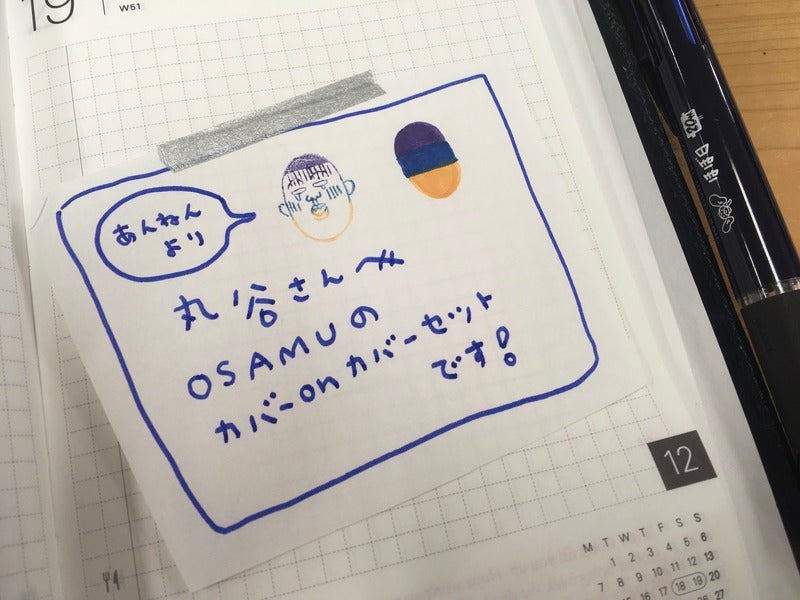 19
W51
あんねん
より
丸谷さんへ
OSAMUの
カバーonカバーセット
です!
12
M T W T F S S
1 2 3 4 5 6
7 8 9 10 11 12 13
17 18 19 20
27